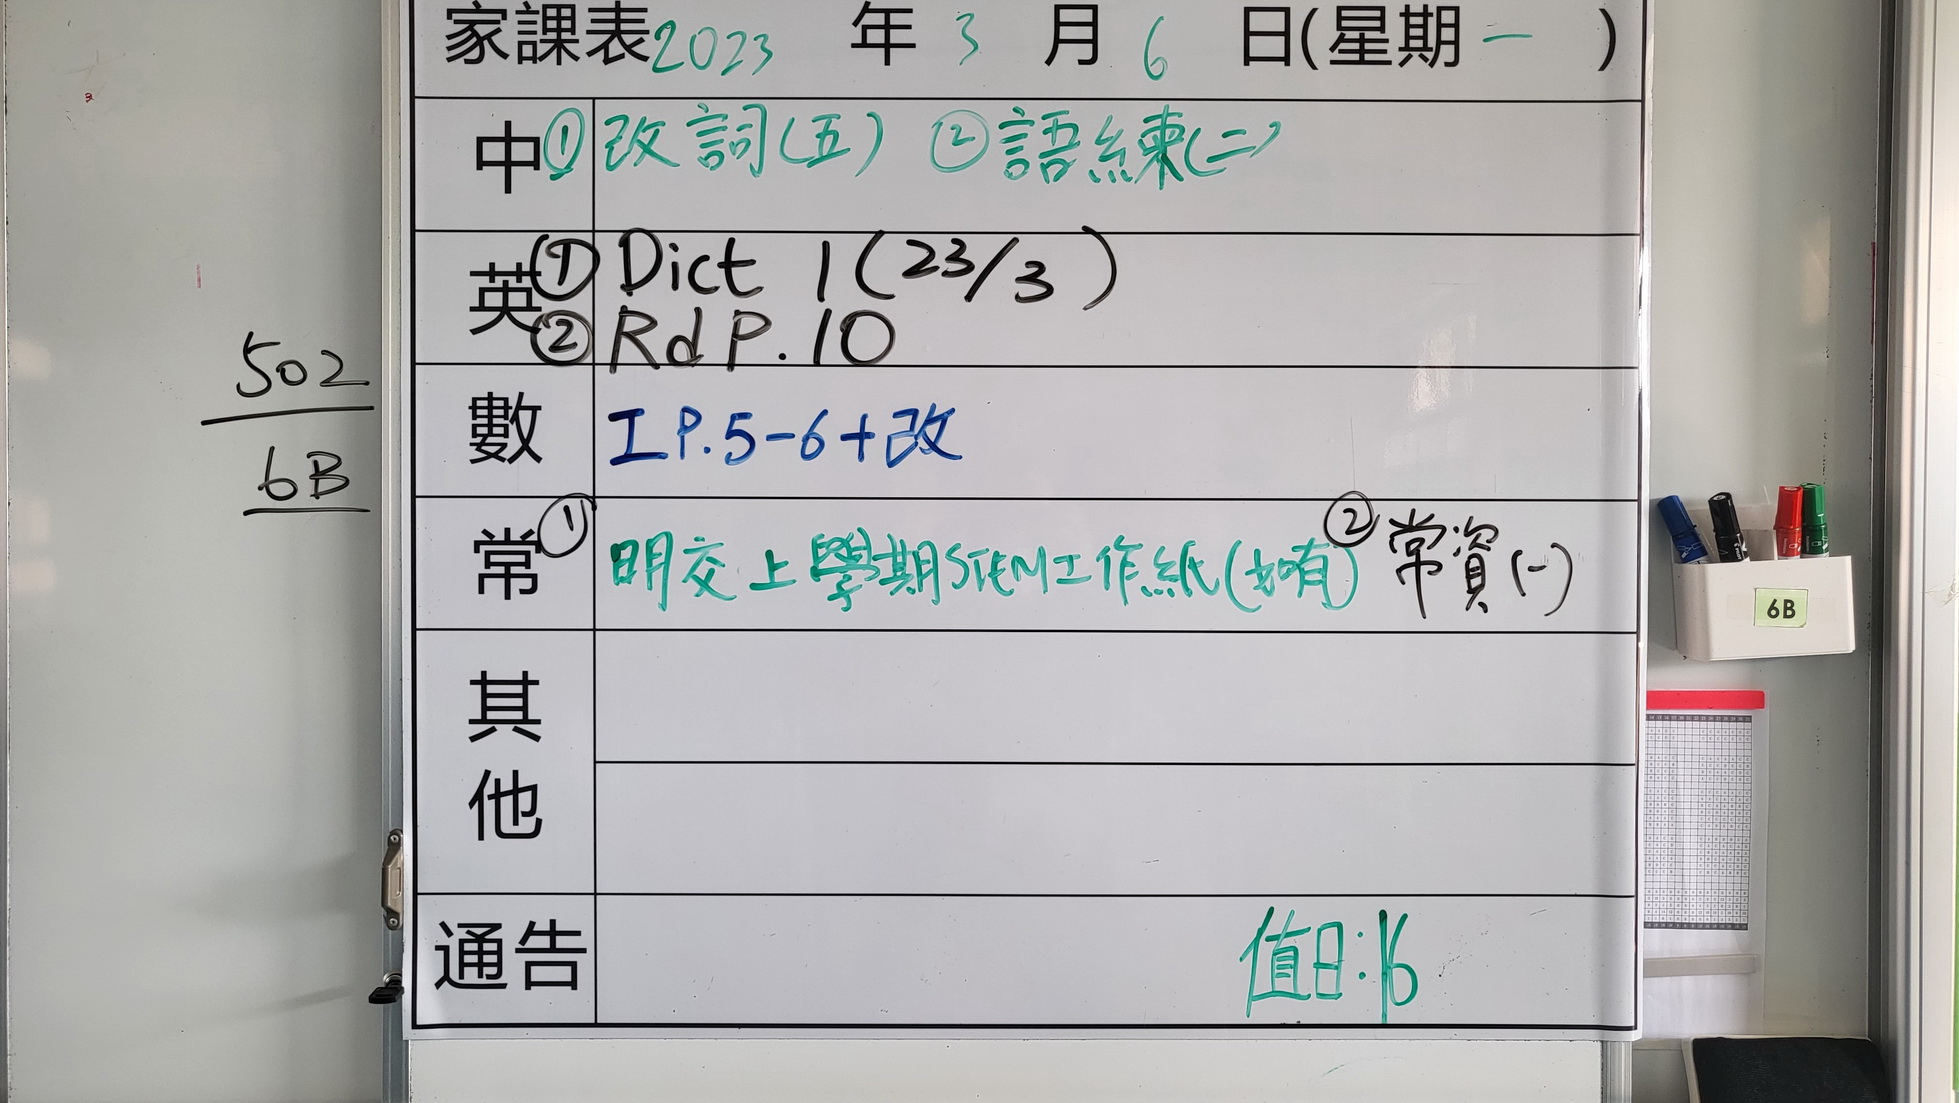 家課表2023 年 3 月 6 日(星期一 )
中 ①改詞(五) ②語練(二)
英 ①Dict 1(23/3)
②Rd P.10
數 工P.5-6+改
常 ①明交上學期STEM工作紙(如有) ②常資(一)
其他
通告 值日:16
502
6B
6B